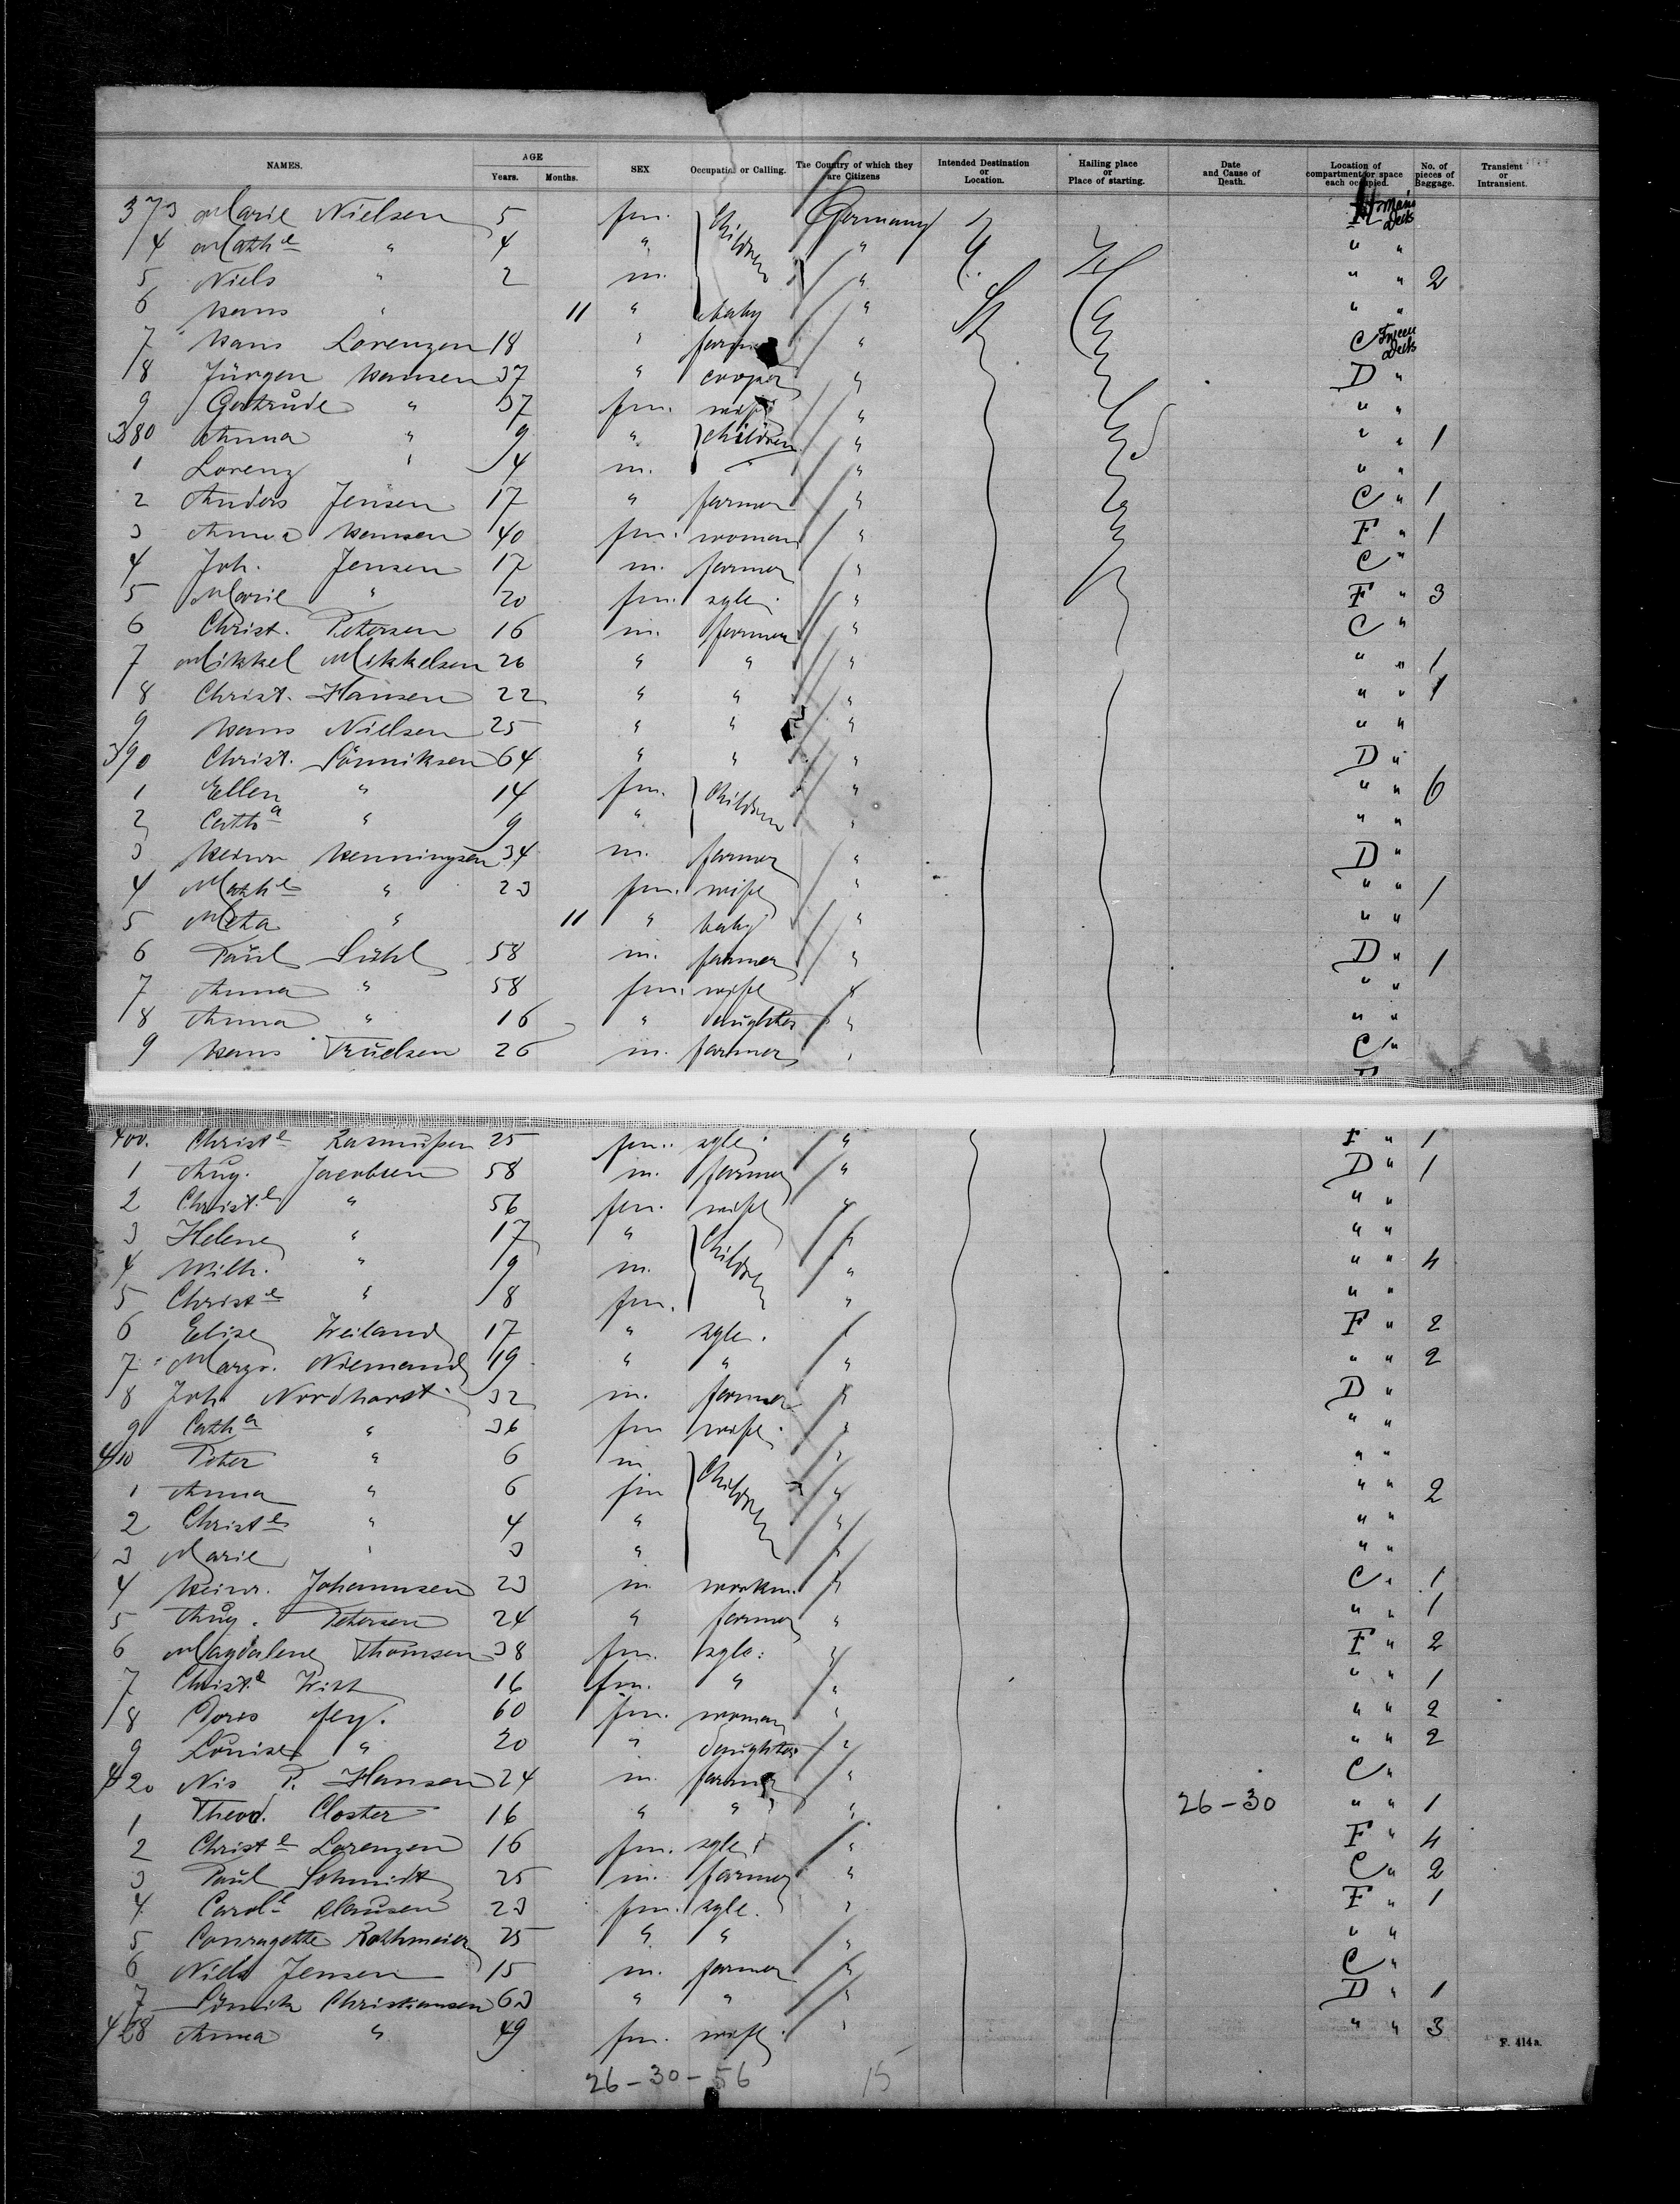 NAMES. AGE Years. Months. SEX Occupation or Calling. The Country of which they are Citizens Intended Destination or Location. Hailing place or Place of starting. Date and Cause of Death. Location of compartment or space each occupied. No. of pieces of Baggage. Transient or Intransient.
373 Marie Nielsen 5 fm. Children Germany Main Deck
4 Math e " 4 " " " "
5 Niels " 2 m. " " " 2
6 Hans " 11 " baby " " "
7 Hans Lorenzen 18 " farmer " C Tween Deck
8 Jürgen Hansen 37 " cooper " D "
9 Gertrude " 37 fm. wife " " "
380 Anna " 9 " children " " " 1
1 Lorenz " 4 m. " " " "
2 Anders Jensen 17 " farmer " C " 1
3 Anna Hansen 40 fm. woman " F " 1
4 Joh. Jensen 17 m. farmer " C "
5 Marie " 20 fm. sgle. " F " 3
6 Christ. Petersen 16 m. farmer " C "
7 Mikkel Mikkelsen 26 " " " " " 1
8 Christ. Hansen 22 " " " " " 1
9 Hans Nielsen 25 " " " " "
390 Christ. Sönniksen 64 " " " D "
1 Ellen " 14 fm. Children " " " 6
2 Cath a " 9 " " " "
3 Heinr Henningsen 34 m. farmer " D "
4 Math e " 23 fm. wife " " " 1
5 Meta " 11 " baby " " "
6 Paul Sühl 58 m. farmer " D " 1
7 Anna " 58 fm. wife " " "
8 Anna " 16 " daughter " " "
9 Hans Truelsen 26 m. farmer " C "
400. Christ e Rasmussen 25 fm. sgle. " F " 1
1 Aug. Jacobsen 58 m. farmer " D " 1
2 Christ. e " 56 fm. wife " " "
3 Helene " 17 " Children " " "
4 Wilh. " 9 m. " " " 4
5 Christ e " 8 fm. " " "
6 Elise Weiland 17 " sgle. " F " 2
7 Margr. Niemand 19 " " " " " 2
8 Joh. Nordhorst 32 m. farmer " D "
9 Cath a " 36 fm wife " " "
410 Peter " 6 m Children " " "
1 Anna " 6 fm " " " 2
2 Christ e " 4 " " " "
3 Marie " 3 " " " "
4 Heinr. Johannsen 23 m. workm. " C " 1
5 Aug. Petersen 24 " farmer " " " 1
6 Magdalene Thomsen 38 fm. sgle. " F " 2
7 Christ. e 16 fm. " " " " 1
8 Doris 60 fm. woman " " " 2
9 Louise " 20 " daughter " " " 2
420 Nis P. Hansen 24 m. farmer " C "
1 Theod. Closter 16 " " " 26-30 " " 1
2 Christ e Lorenzen 16 fm. sgle. " F " 4
3 Paul Schmidt 25 m. farmer " C " 2
4 Carol e Clausen 23 fm. sgle. " F " 1
5 Rothmeier 25 " " " " "
6 Niels Jensen 15 m. farmer " C "
7 Sönnik Christiansen 63 " " " D " 1
428 Anna " 49 fm. wife " " " 3
F. 414a.
26-30-56 15